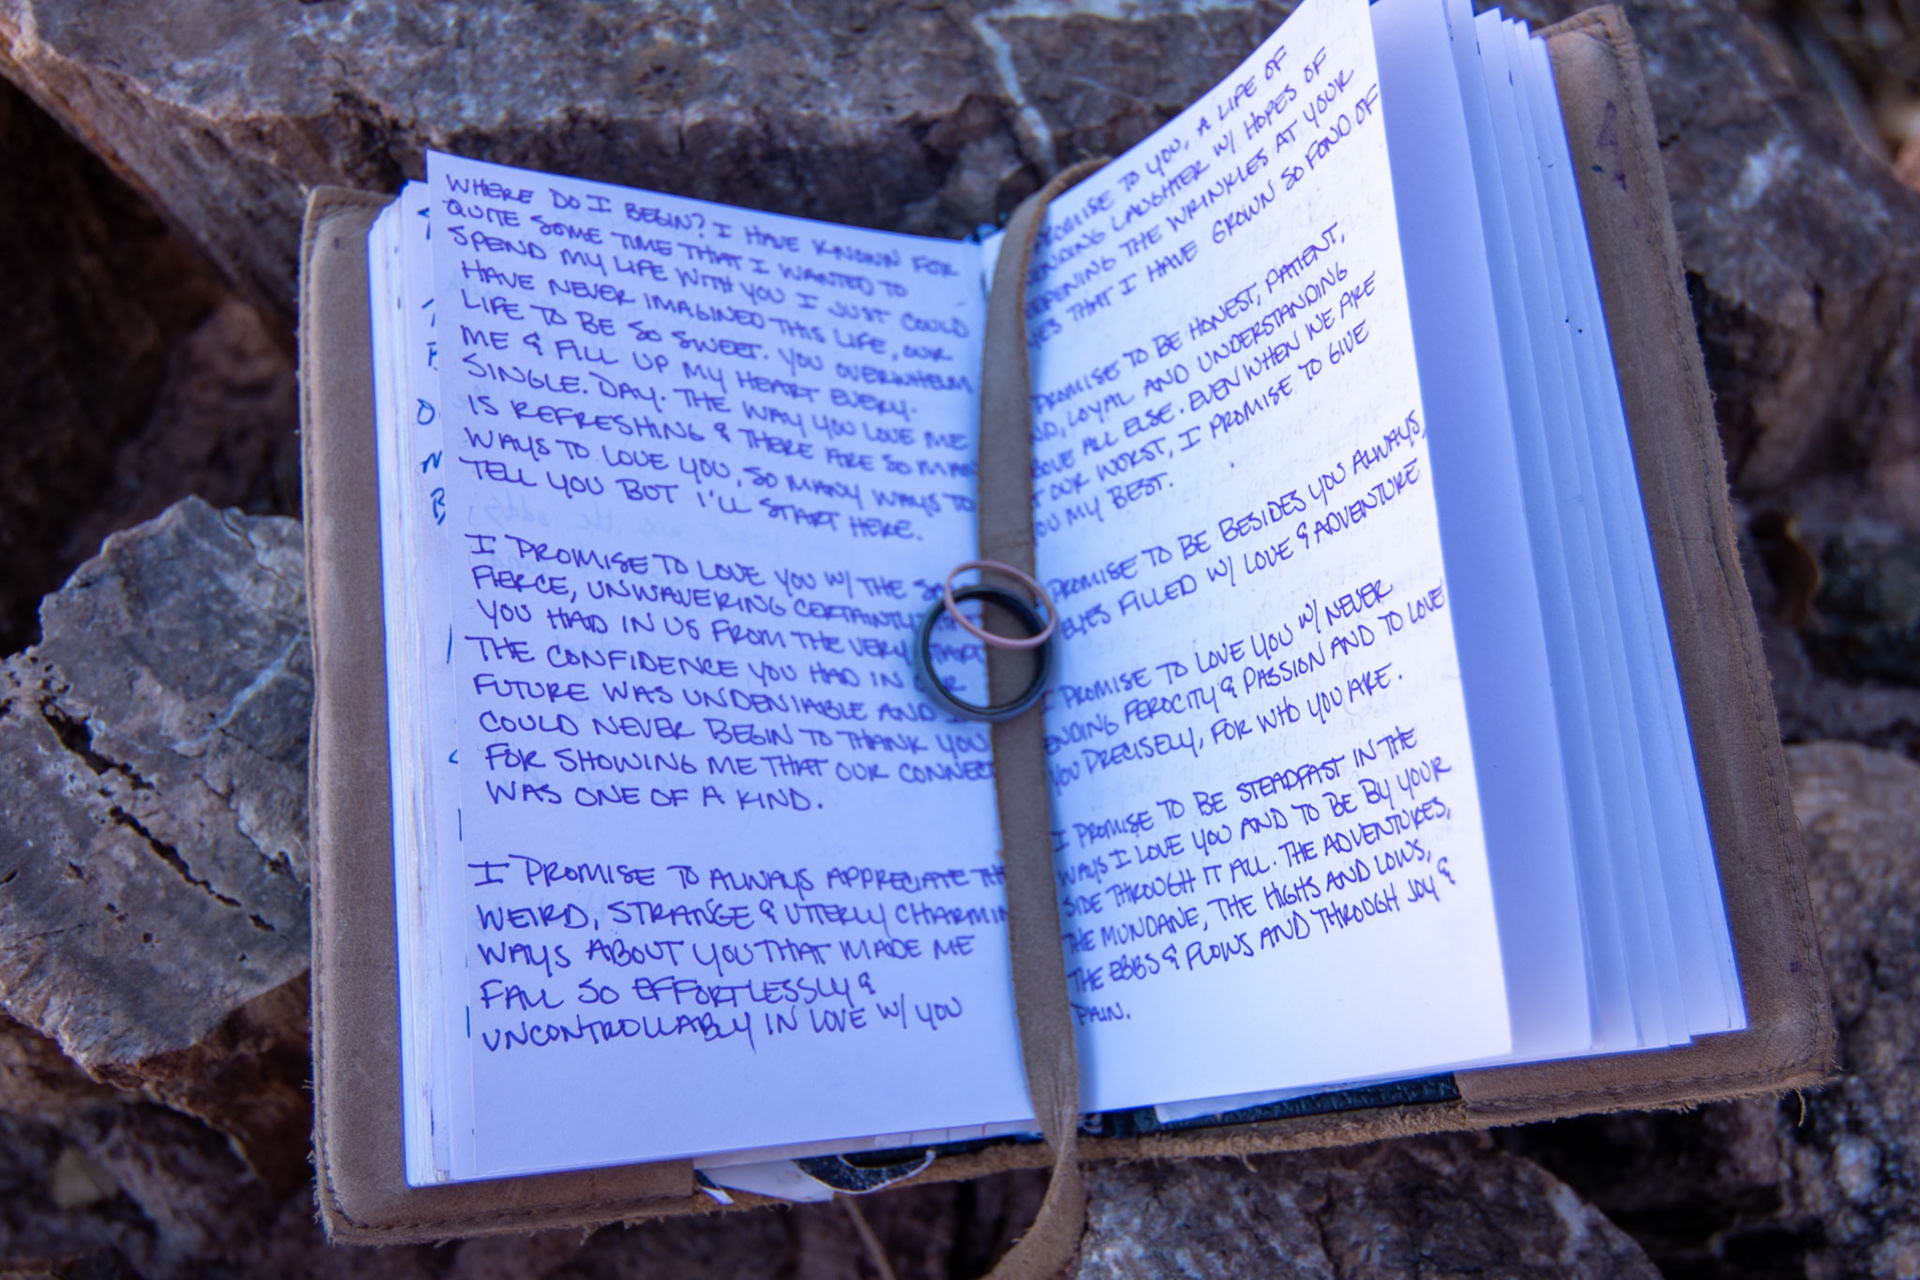 WHERE DO I BEGIN? I HAVE KNOWN FOR
QUITE SOME TIME THAT I WANTED TO
SPEND MY LIFE WITH YOU I JUST COULD
HAVE NEVER IMAGINED THIS LIFE, OUR
LIFE TO BE SO SWEET. YOU OVERWHELM
ME & FILL UP MY HEART EVERY.
SINGLE. DAY. THE WAY YOU LOVE ME
IS REFRESHING & THERE ARE SO MAN
WAYS TO LOVE YOU, SO MANY WAYS TO
TELL YOU BUT I'LL START HERE.
I PROMISE TO LOVE YOU W/ THE
FIERCE, UNWAVERING CERTAINTY
YOU HAD IN US FROM THE VERY START
THE CONFIDENCE YOU HAD IN OUR
FUTURE WAS UNDENIABLE AND I
COULD NEVER BEGIN TO THANK YOU
FOR SHOWING ME THAT OUR CONNEC
WAS ONE OF A KIND.
I PROMISE TO ALWAYS APPRECIATE TH
WEIRD, STRANGE & UTTERLY CHARMIN
WAYS ABOUT YOU THAT MADE ME
FALL SO EFFORTLESSLY &
UNCONTROLLABLY IN LOVE W/ YOU
PROMISE TO YOU, A LIFE OF
ENDING LAUGHTER W/ HOPES OF
EEPENING THE WRINKLES AT YOUR
YES THAT I HAVE GROWN SO FOND OF
PROMISE TO BE HONEST, PATIENT,
ND, LOYAL AND UNDERSTANDING
BOVE ALL ELSE. EVEN WHEN WE ARE
T OUR WORST, I PROMISE TO GIVE
OU MY BEST.
PROMISE TO BE BESIDES YOU ALWAYS,
EYES FILLED W/ LOVE & ADVENTURE
I PROMISE TO LOVE YOU W/ NEVER
ENDING FEROCITY & PASSION AND TO LOVE
YOU PRECISELY, FOR WHO YOU ARE.
I PROMISE TO BE STEADFAST IN THE
WAYS I LOVE YOU AND TO BE BY YOUR
SIDE THROUGH IT ALL. THE ADVENTURES,
THE MUNDANE, THE HIGHS AND LOWS,
THE EBBS & FLOWS AND THROUGH JOY &
PAIN.